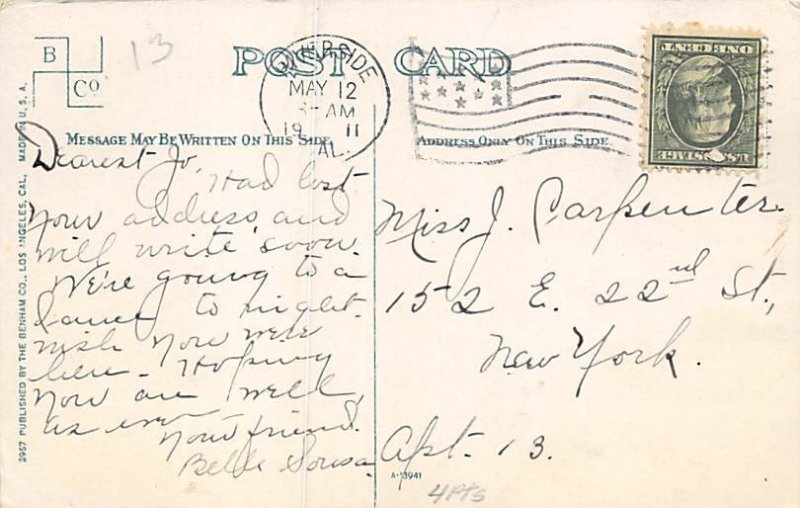 B
Co
13
POST CARD
RIVERSIDE
MAY 12
AM
1911
CAL.
ONE CENT
U.S. POSTAGE
MESSAGE MAY BE WRITTEN ON THIS SIDE
ADDRESS ONLY ON THIS SIDE.
2957 PUBLISHED BY THE BENHAM CO., LOS ANGELES, CAL, MADE IN U. S. A.
Dearest Jo,
Had lost
your address and
will write soon.
We're going to a
dance to night.
wish you were
here - Hoping
you are well,
as ever
Your friend.
Belle Sousa
Miss J. Carpenter.
152 E. 22nd St,
New York.
Apt. 13.
A-13941
4Pts